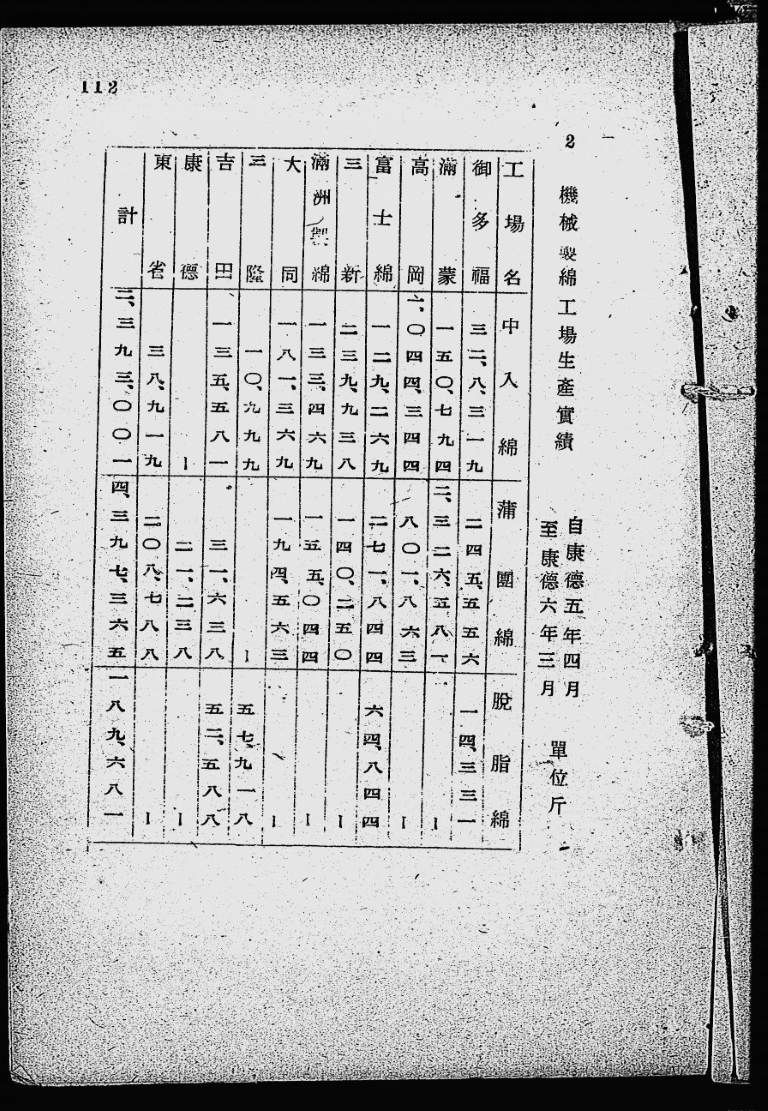 112
2 機械製綿工場生產實績 自康德五年四月 單位斤
至康德六年三月
工場名 中入綿 蒲團綿 脫脂綿
御多福 三二、八、三一九 二四五、五五六 一四、三三一
滿蒙 一五〇、七九四 二、三二六、五八一 ー
高岡 一、〇四四、三四四 八〇一、八六三 ー
富士綿 一二九、二六九 二七一、八四四 六四、八四四
三新 二三九、九三八 一四〇、二五〇 ー
滿洲製綿 一三三、四六九 一五五、〇四四 ー
大同 一八一、三六九 一九四、五六三 ー
三隆 一〇、九九九 ー 五七、九一八
吉田 一三五、五八一 三一、六三八 五二、五八八
康德 ー 二一、二三八 ー
東省 三八、九一九 二〇八、七八八 ー
計 二、三九三、〇〇一 四、三九七、三六五 一八九、六八一